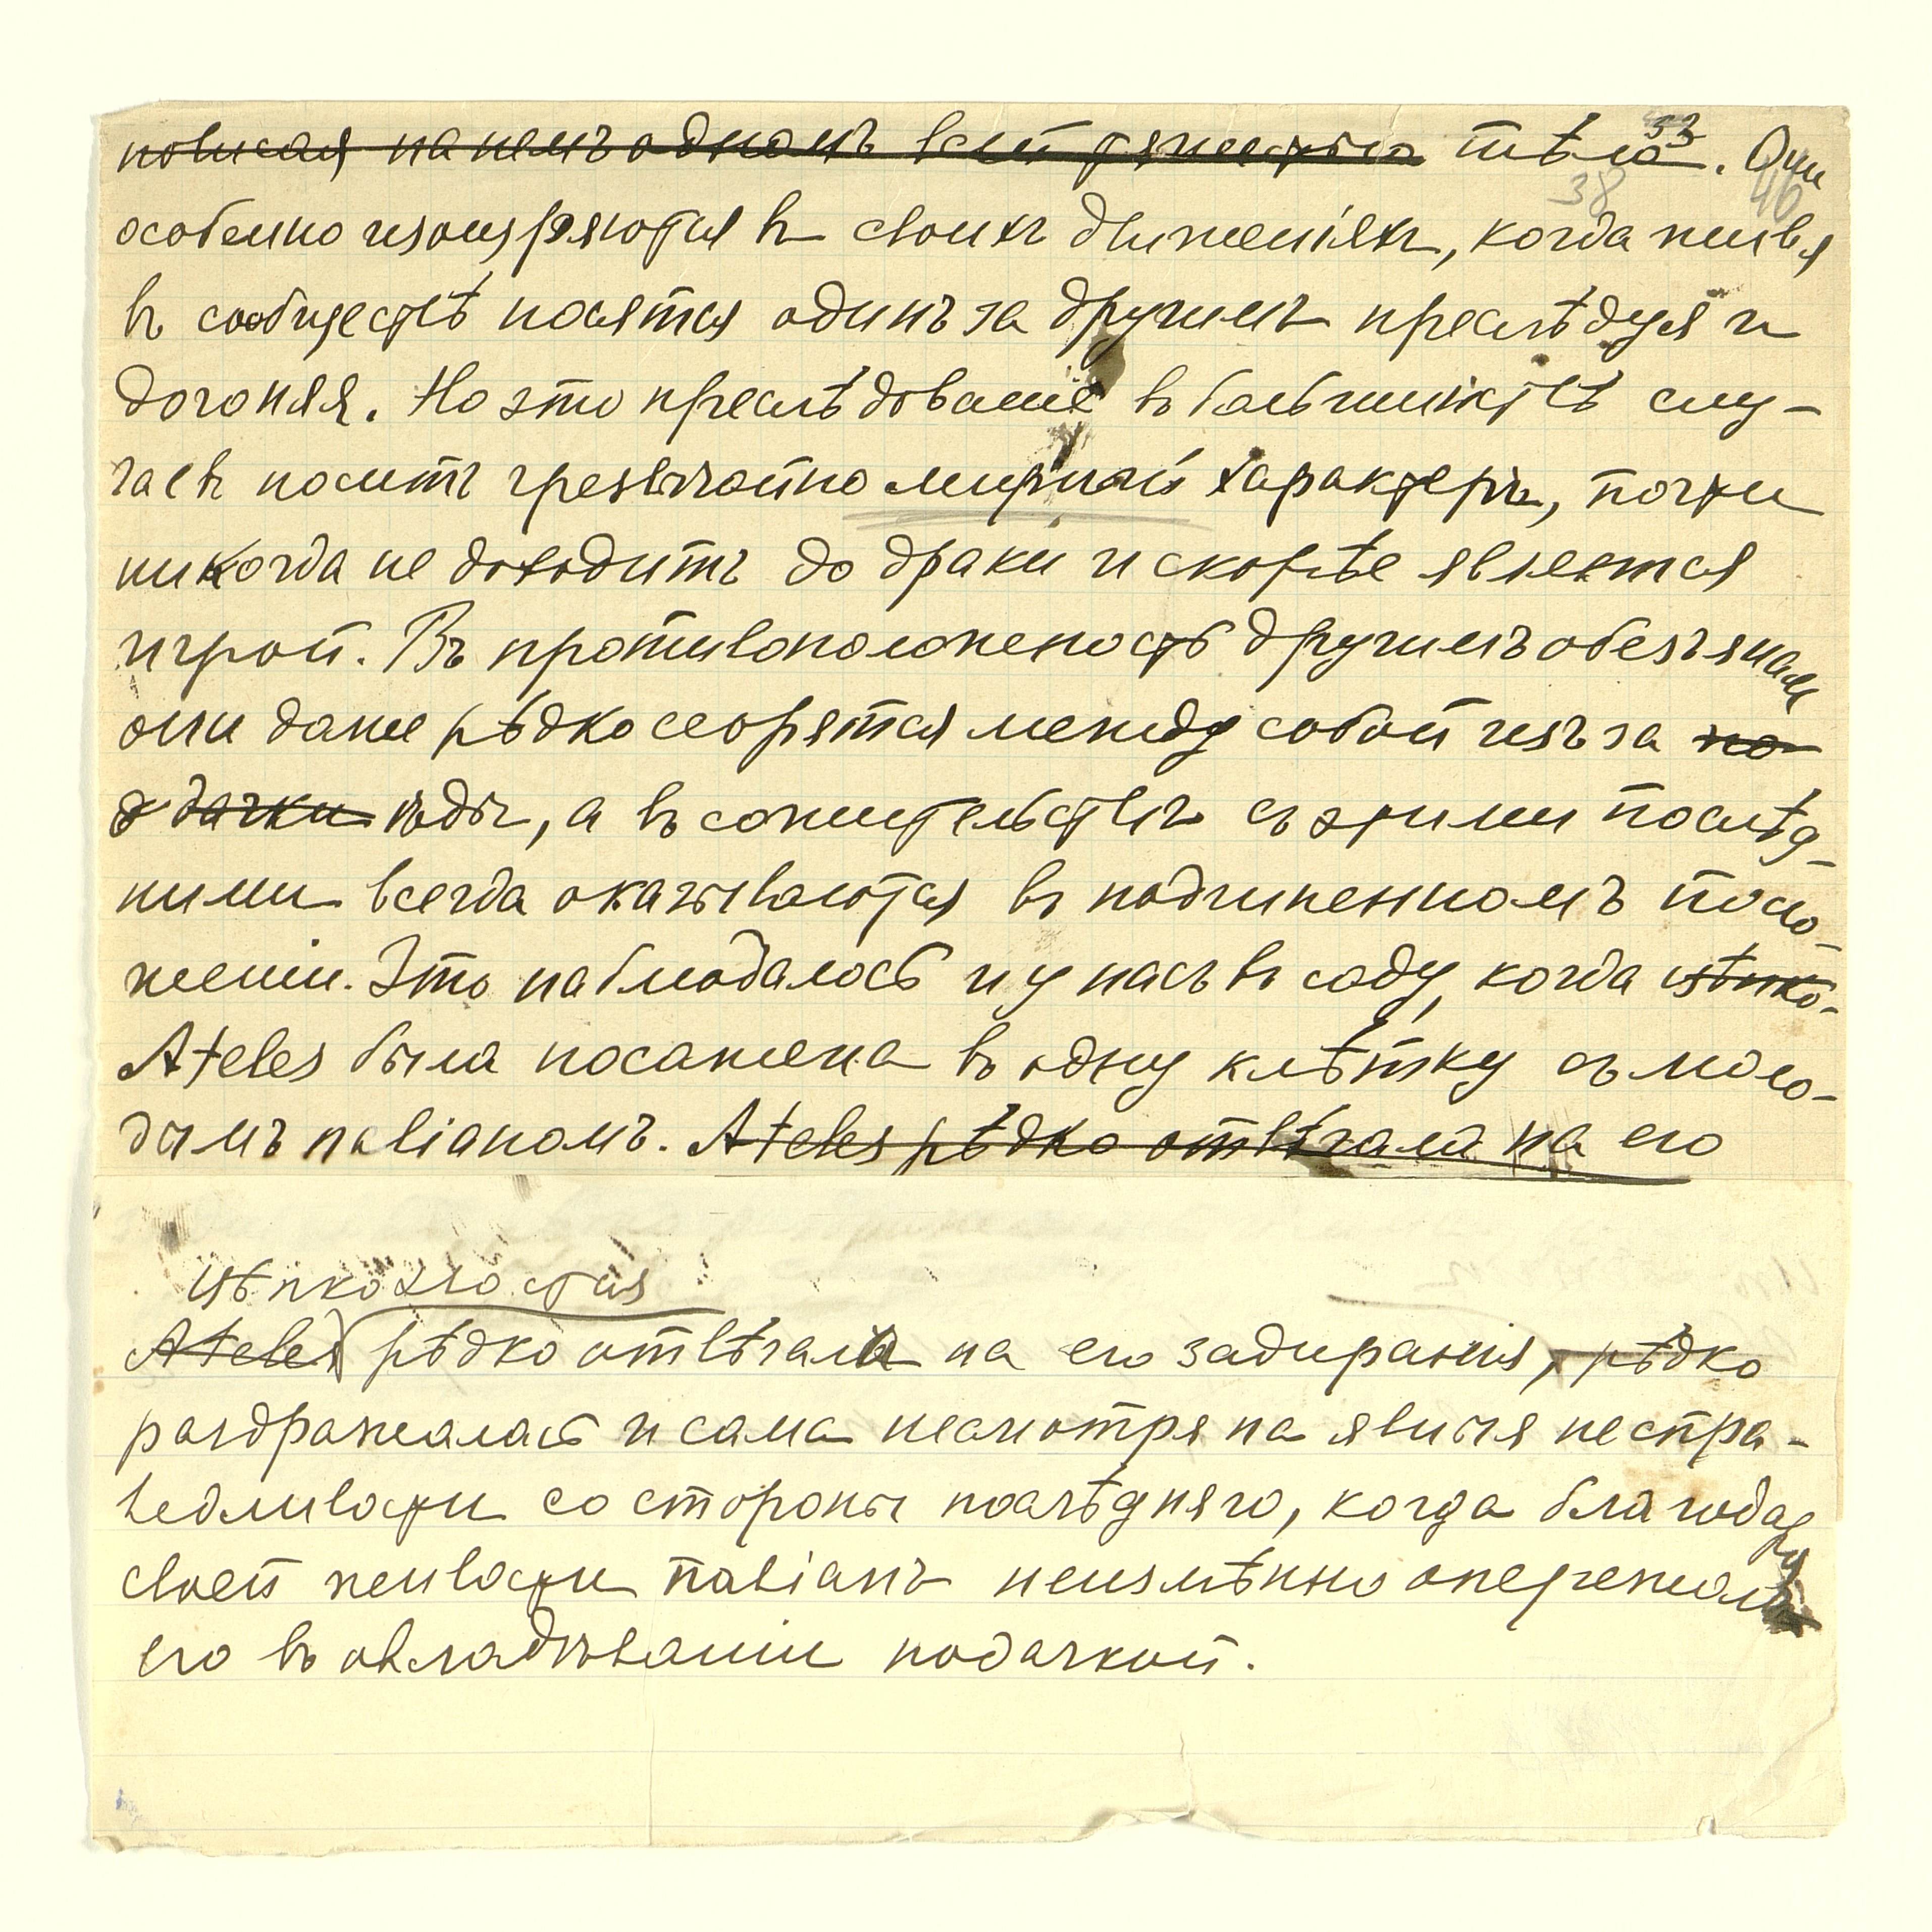 повисая на немъ одномъ всей тяжестью тѣла. Они
53
38
46
особенно изощряются въ своихъ движеніяхъ, когда живя
въ сообществѣ носятся одинъ за другимъ преслѣдуя и
догоняя. Но это преслѣдованіе въ большинствѣ слу-
чаевъ носитъ чрезвычайно мирный характеръ, почти
никогда не доходитъ до драки и скорѣе является
игрой. Въ противоположность другимъ обезъянамъ
они даже рѣдко ссорятся между собой изъ за по
дачки ѣды, а въ сожительствѣ съ этими послѣд-
ними всегда оказываются въ подчиненномъ поло-
женіи. Это наблюдалось и у насъ въ саду, когда цѣпко-
Ateles была посажена въ одну клѣтку съ моло-
дымъ павіаномъ. Ateles рѣдко отвѣчала на его
цѣпкохвостая
Ateles рѣдко отвѣчала на его задиранія, рѣдко
раздражалась и сама несмотря на явныя неспра-
ведливости со стороны послѣдняго, когда благодаря
своей живости павіанъ неизмѣнно опережалъ
его въ овладѣваніи подачкой.